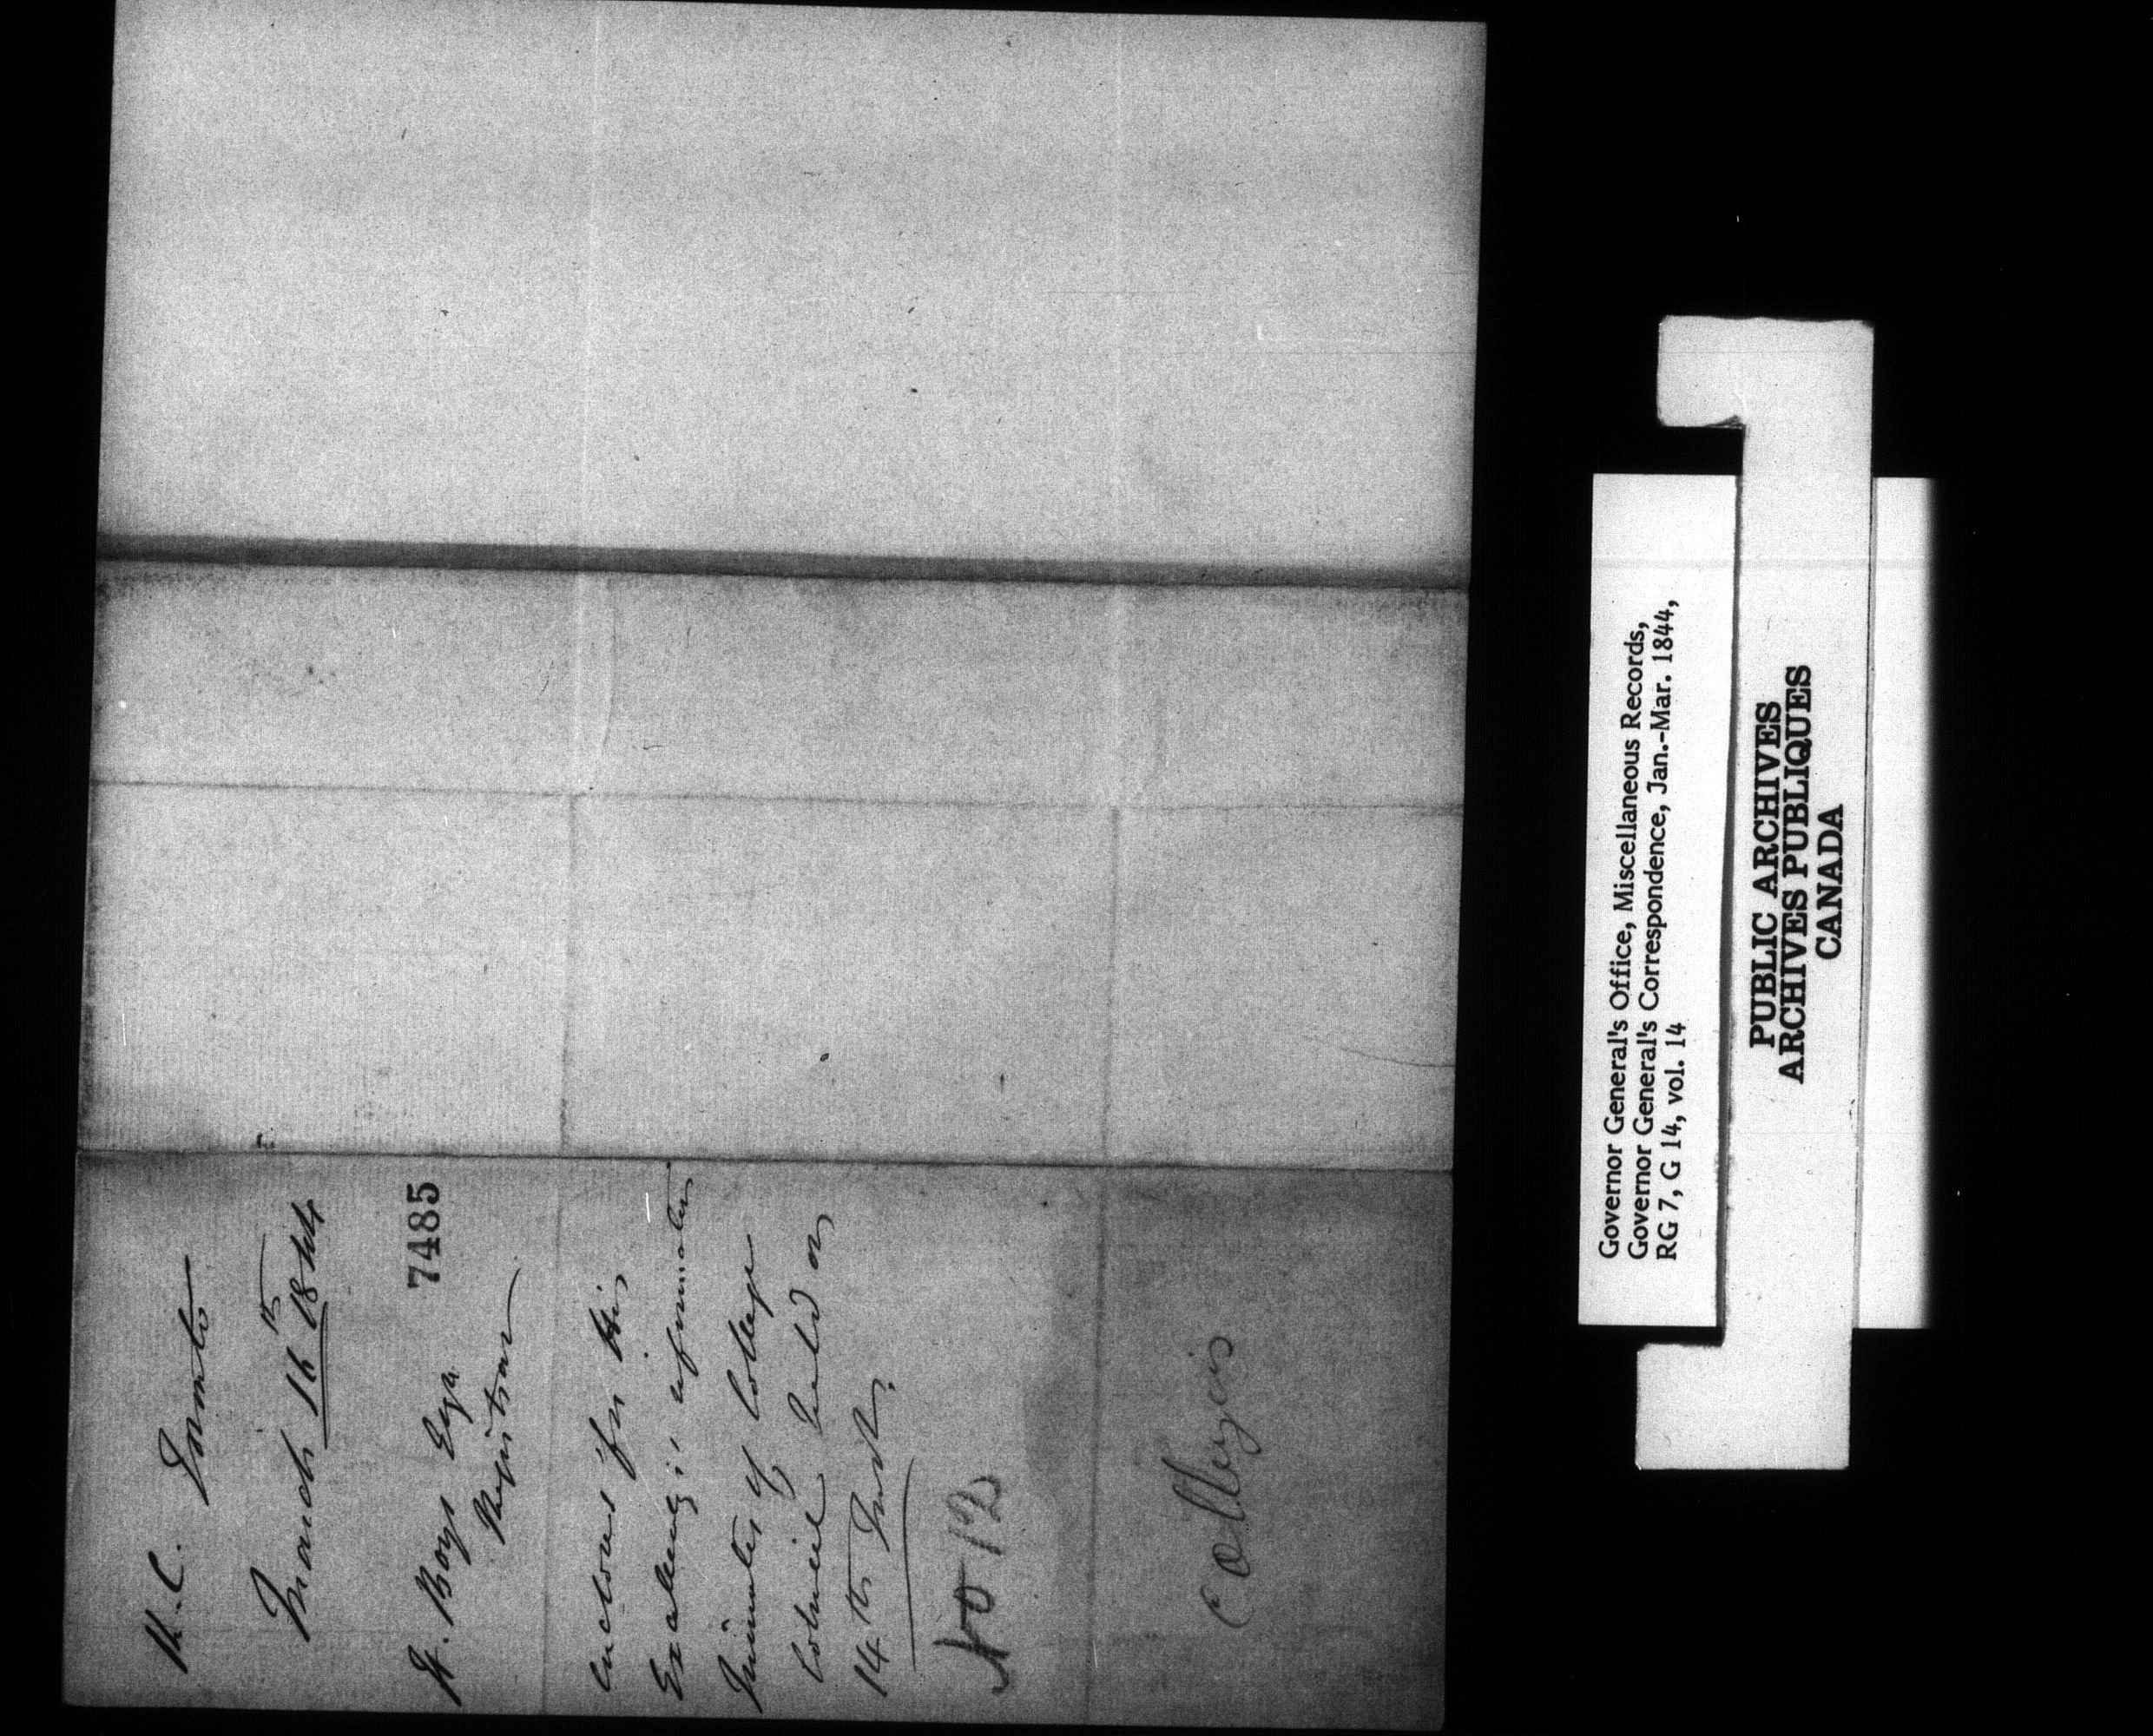 K.C. Toronto
March 16th 1844
7485
H. Boys Esqr
Registrar
Encloses for His
Excellency's information
Minutes of College
Council held on
14th Inst.
No 12
Colleges
Governor General's Office, Miscellaneous Records,
Governor General's Correspondence, Jan.-Mar. 1844,
RG 7, G 14, vol. 14
PUBLIC ARCHIVES
ARCHIVES PUBLIQUES
CANADA